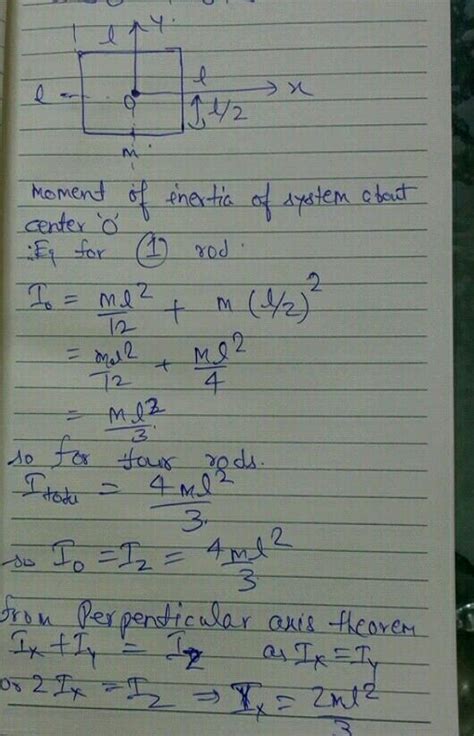 l y.
l l
O x
l/2
m
moment of inertia of system about
center 'O'
:Eq for ① rod.
I₀ = ml²/12 + m (l/2)²
= ml²/12 + ml²/4
= ml²/3
so for four rods.
Itotal = 4ml²/3.
so I₀ = Iz = 4ml²/3
from Perpendicular axis theorem
Ix + Iy = Iz as Ix = Iy
or 2Ix = Iz ⇒ Ix = 2ml²/3